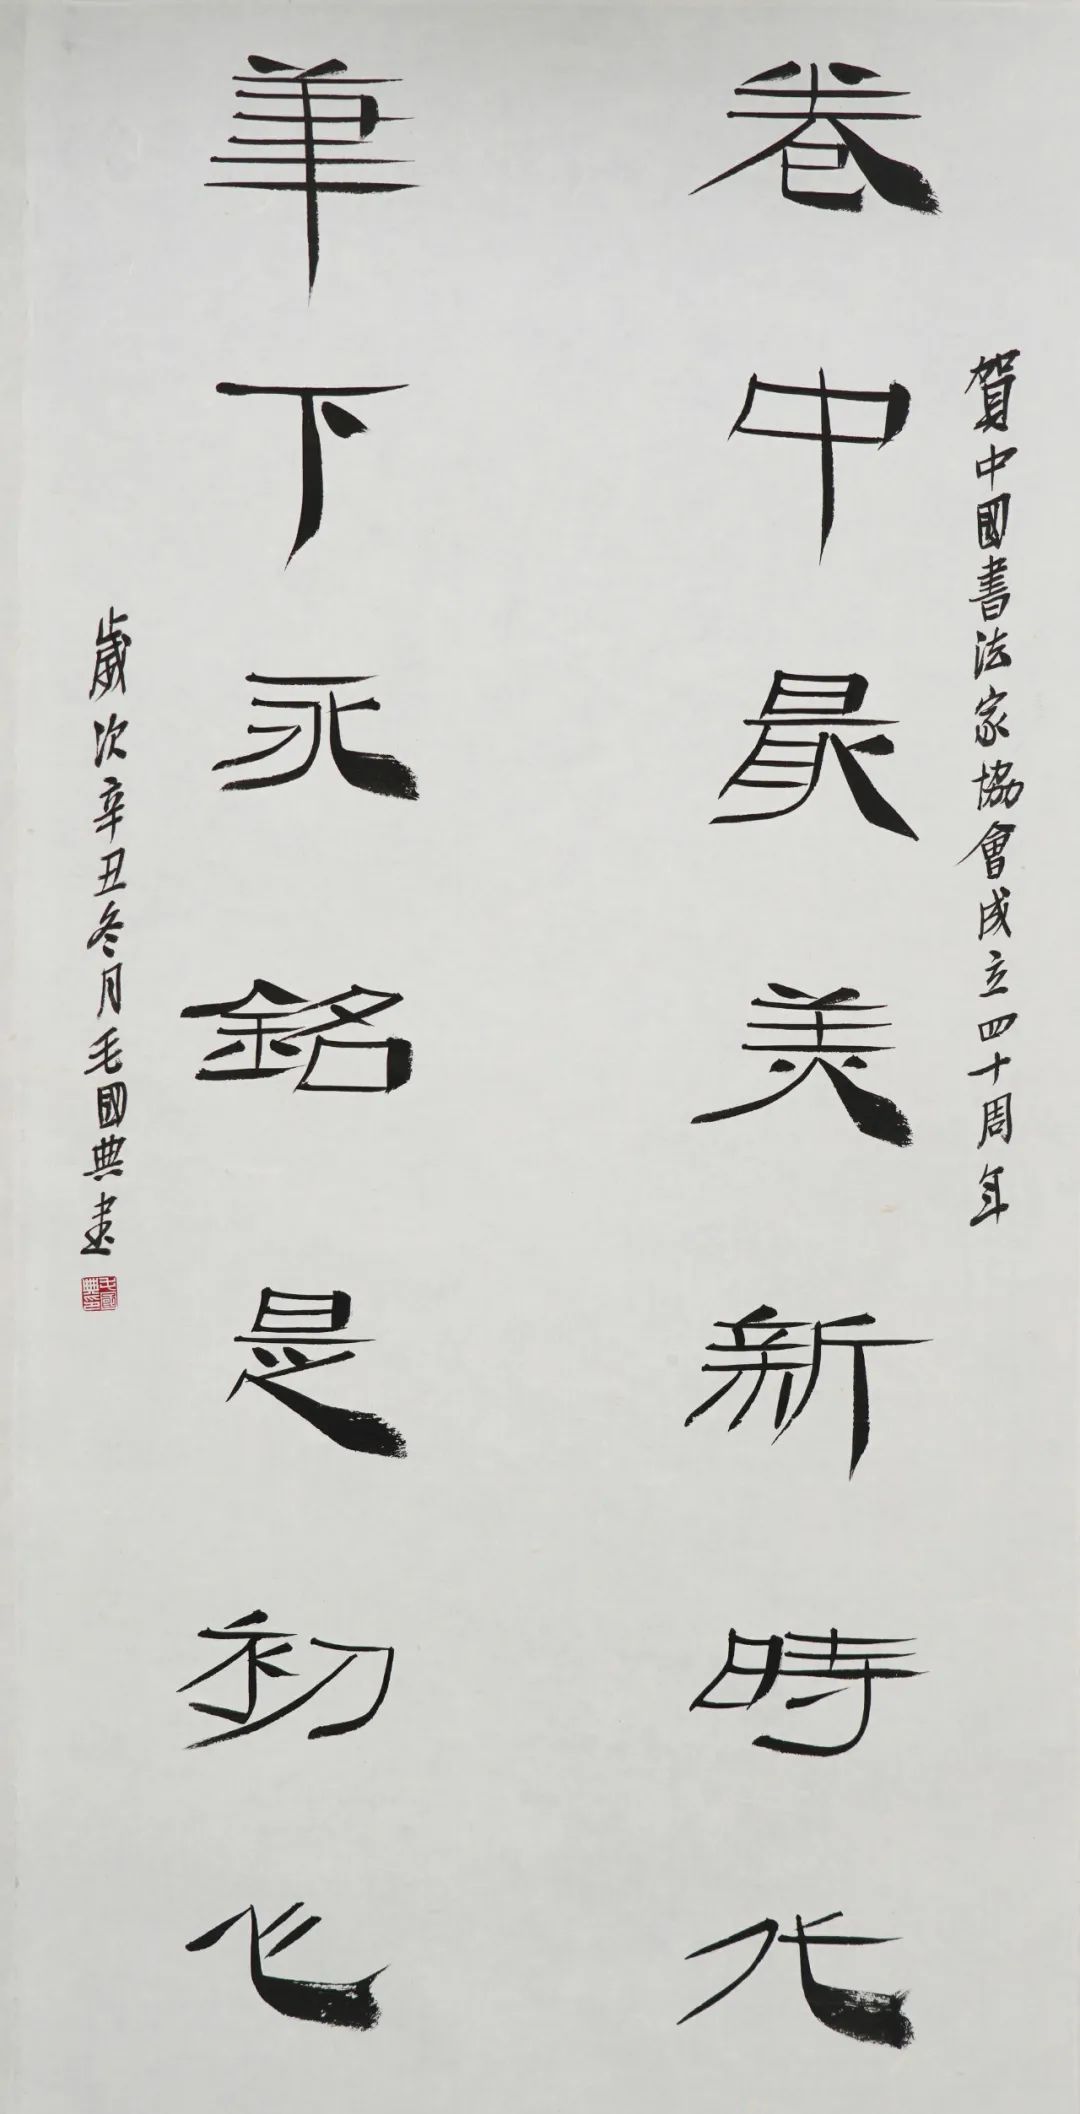 賀中國書法家協會成立四十周年
卷中最美新時代
筆下永銘是初心
歲次辛丑冬月毛國典書
毛國典印